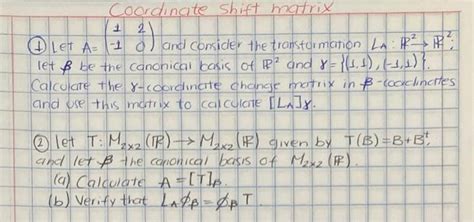 Coordinate shift matrix
① Let A= (1 2
-1 0) and consider the transformation L_A: ℝ² → ℝ²,
let β be the canonical basis of ℝ² and γ={(1,1),(-1,1)}.
Calculate the γ-coordinate change matrix in β-coordinates
and use this matrix to calculate [L_A]γ.
② let T: M₂ₓ₂(ℝ) → M₂ₓ₂(ℝ) given by T(B)=B+Bᵗ,
and let β the canonical basis of M₂ₓ₂(ℝ).
(a) Calculate A=[T]β.
(b) Verify that L_A ϕ_β = ϕ_β T